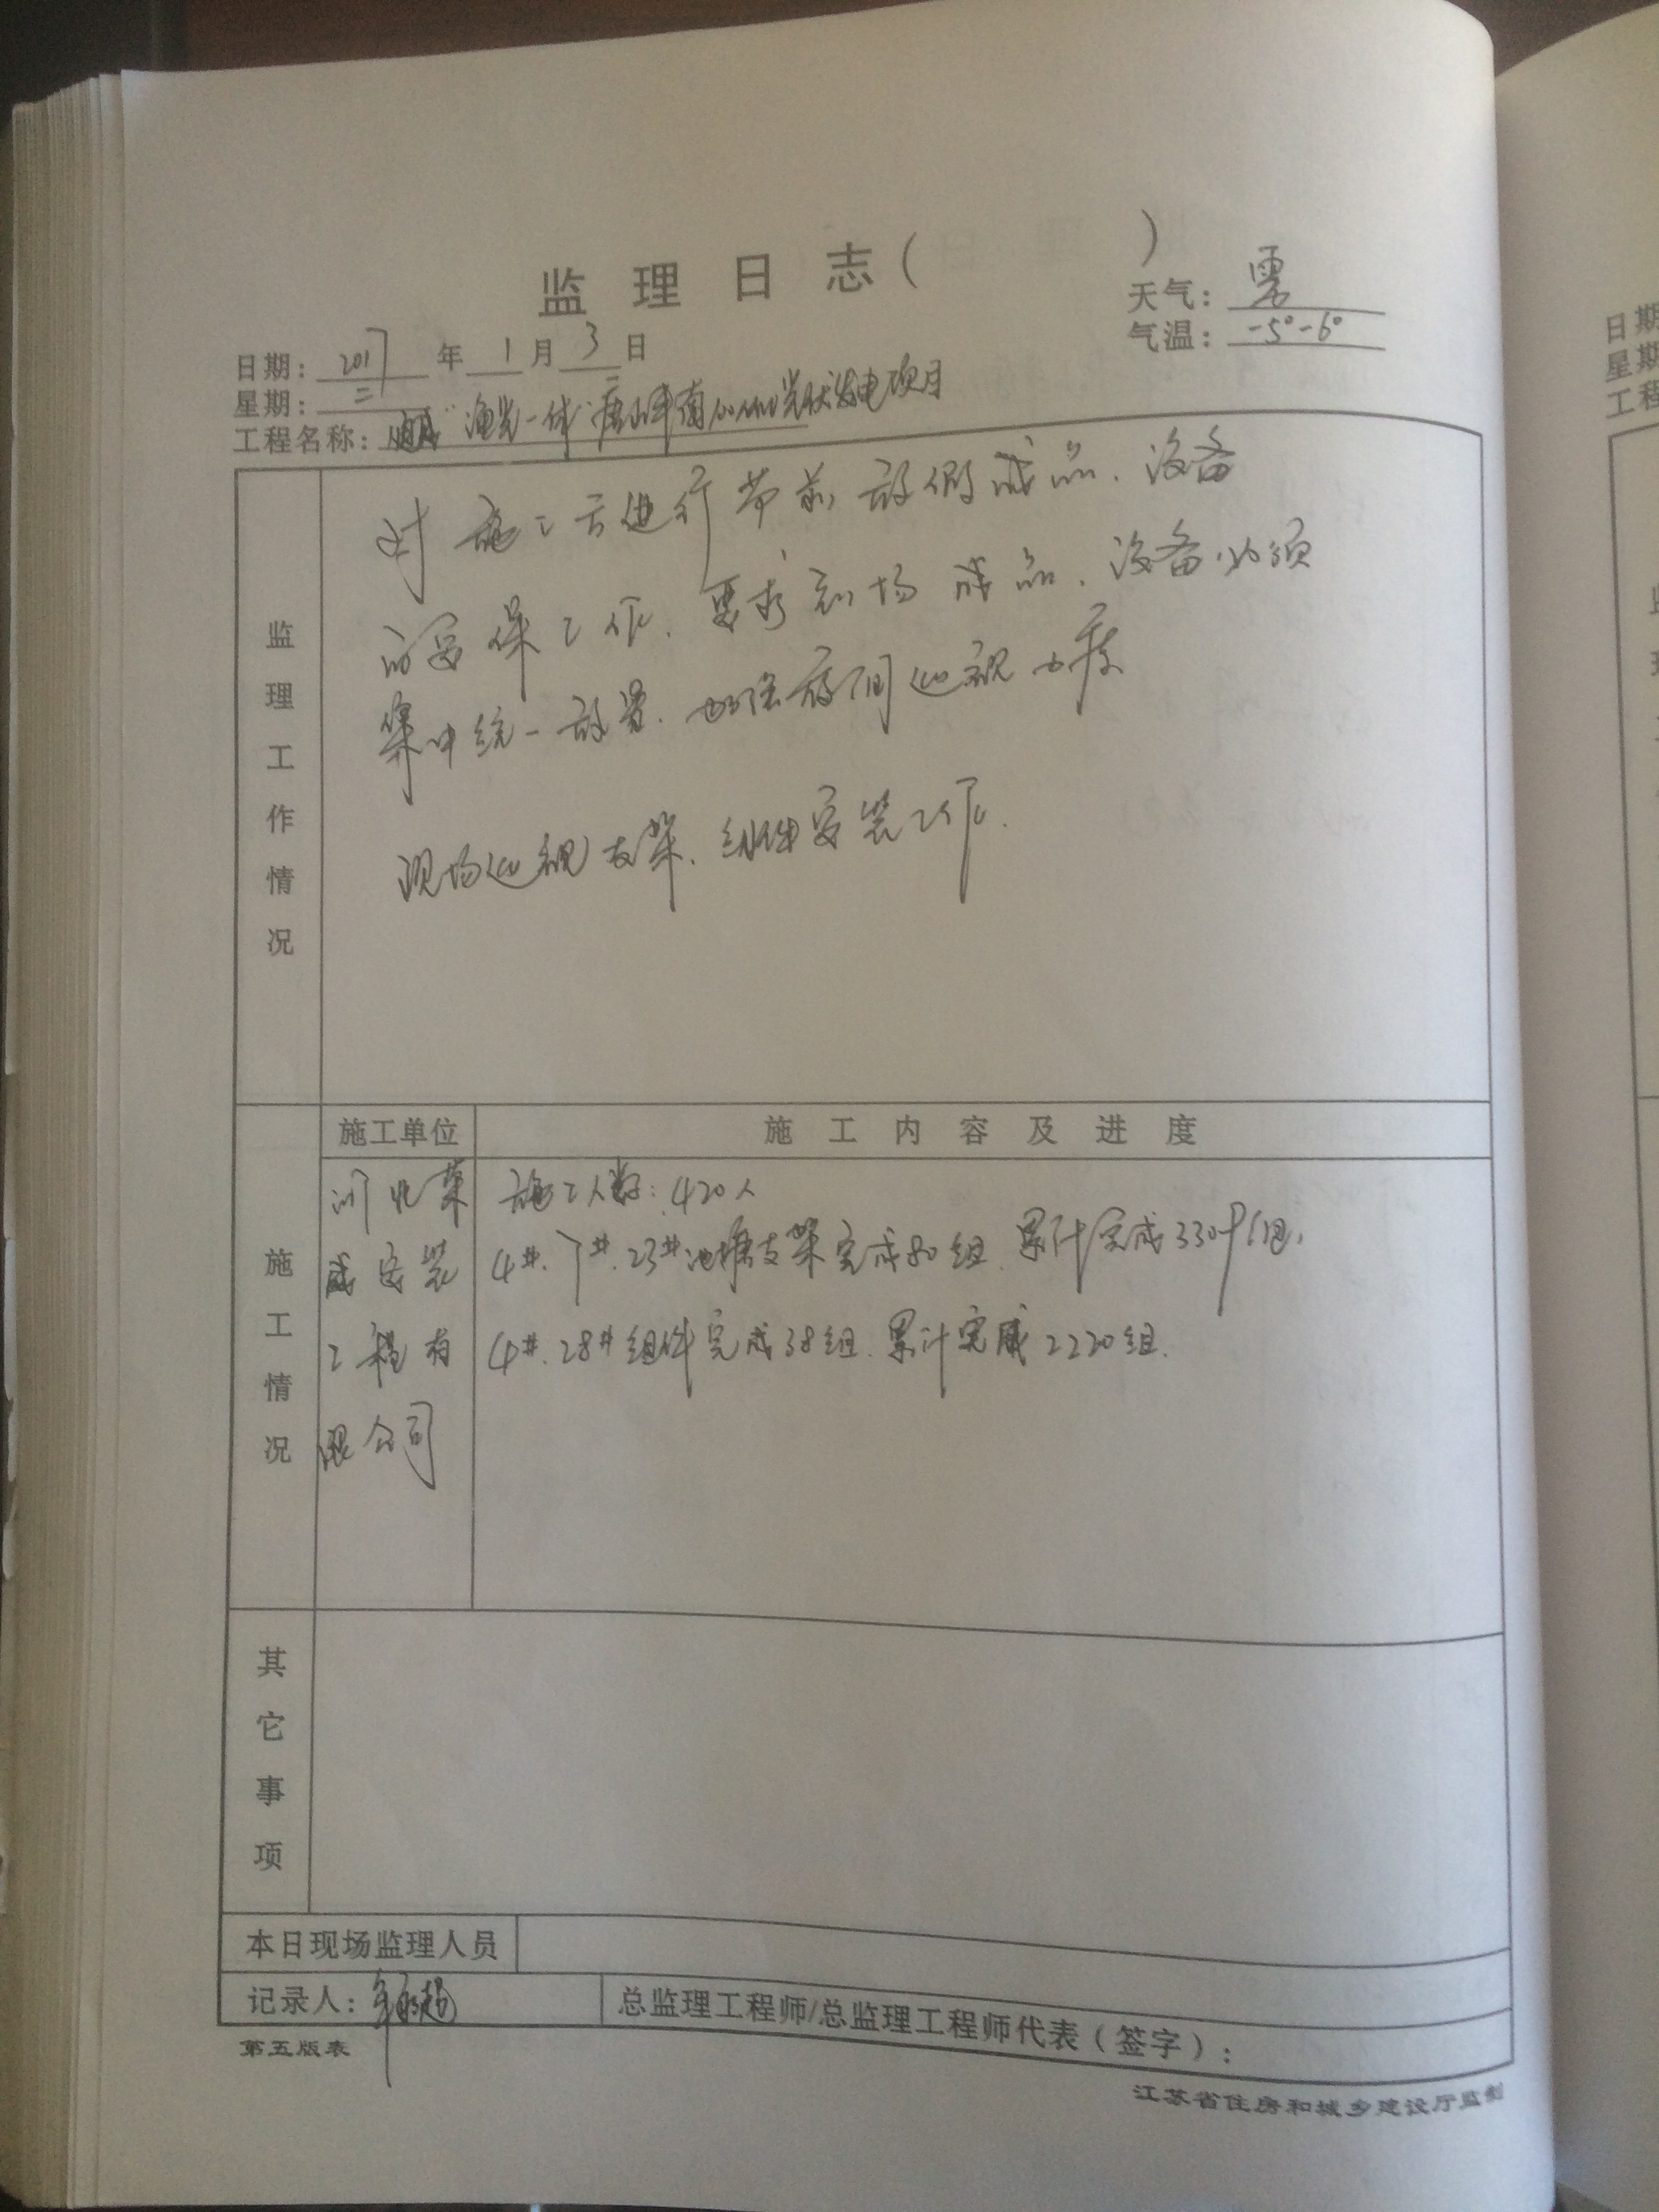 监理日志（ ）
天气：雾
气温：-5°-6°
日期：2017年1月3日
星期：二
工程名称：通威“渔光一体”唐山丰南 光伏发电项目
监理工作情况
对施工方进行节前放假成品、设备
的安保工作，要求到场成品、设备必须
集中统一放置，加强夜间巡视力度
现场巡视支架、组件安装工作.
施工情况
施工单位
施工内容及进度
安装
工程有
限公司
施工人数：420人
4#、7#、23#池塘支架完成80组，累计完成组，
4#、28#组件完成38组，累计完成2220组.
其它事项
本日现场监理人员
记录人：
总监理工程师/总监理工程师代表（签字）：
第五版表
江苏省住房和城乡建设厅监制
日期
星期
工程